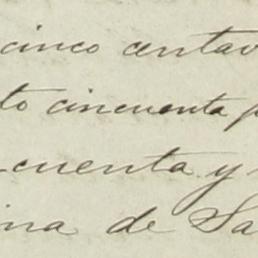 cinco centav
to cincuenta p
cuenta y
ina de Sa